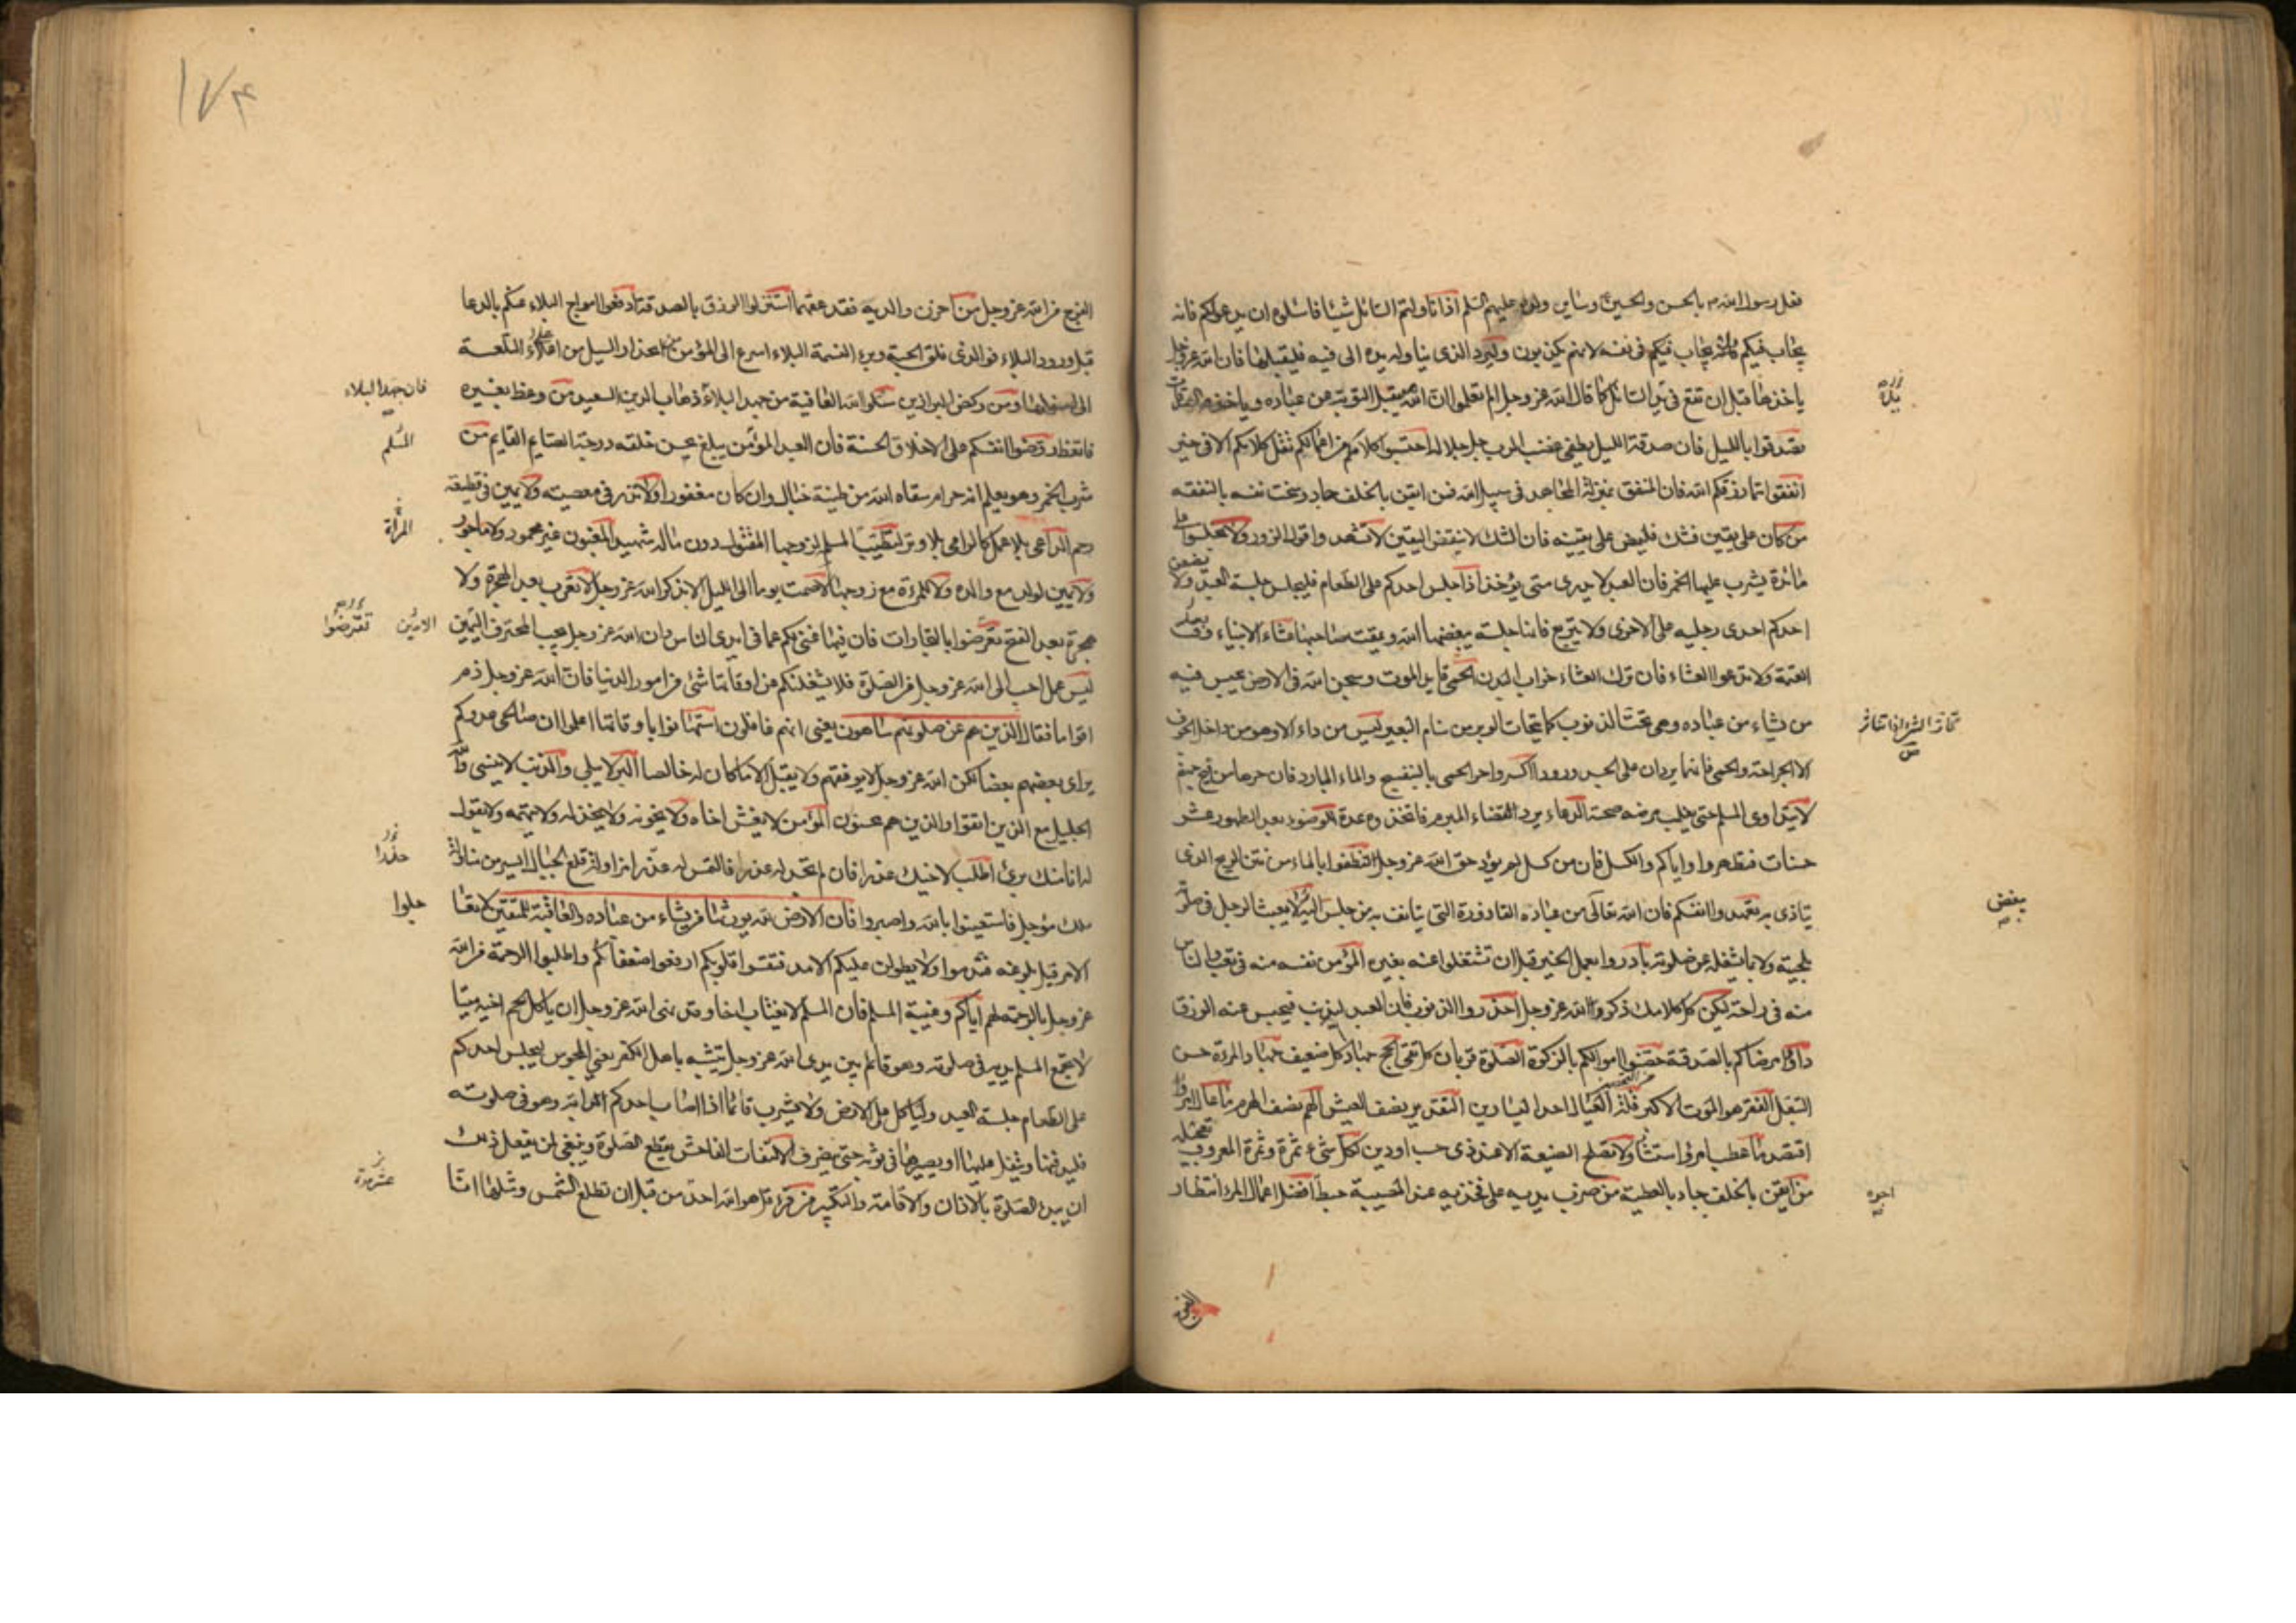 فعل رسول الله ص بالحسن والحسين ع وساير ولده عليهم السلم اذا ناولتم السائل شيئا فاسئلوه ان يدعو لكم فانه
يجاب فيكم ولا يجاب فيكم في نفسه لانهم يكذبون وليرد الذي يناوله يده الى فيه فليقبلها فان الله عز وجل
ياخذها قبل ان تقع في يد السائل كما قال الله عز وجل الم تعلموا ان الله هو يقبل التوبة عن عباده وياخذ الصدقات
تصدقوا بالليل فان صدقة الليل يطفي غضب الرب جل جلاله احتسبوا كلامكم من اعمالكم تقل كلامكم الا في خير
انفقوا مما رزقكم الله فان المنفق بمنزلة المجاهد في سبيل الله فمن ايقن بالخلف جاد وسخت نفسه بالنفقه
من كان على يقين فشك فليمض على يقينه فان الشك لا ينقض اليقين لا تشهدوا قول الزور ولا تجلسوا على
مائدة يشرب عليها الخمر فان العبد لا يدري متى يؤخذ اذا جلس احدكم على الطعام فليجلس جلسة العبد ولا يضعن
احدكم احدى رجليه على الاخرى ولا يتربع فانها جلسة يبغضها الله ويمقت صاحبها عشاء الانبياء بعد
العتمة ولا تدعوا العشاء فان ترك العشاء خراب البدن الحمى قايد الموت وسجن الله في الارض يحبس فيه
من يشاء من عباده وهي تحت الذنوب كما يتحات الوبر من سنام البعير ليس من داء الا وهو من داخل الجوف
الا الجراحة والحمى فانهما يردان على الجسد ورودا اكسروا حر الحمى بالبنفسج والماء البارد فان حرها من فيح جهنم
لا يتداوى المسلم حتى يغلب مرضه صحته الدعاء يرد القضاء المبرم فاتخذوه عدة الوضوء بعد الطهور عشر
حسنات فتطهروا واياكم والكسل فان من كسل لم يؤد حق الله عز وجل تنظفوا بالماء من نتن الريح الذي
يتاذى به تعهدوا انفسكم فان الله تعالى من عباده القاذورة التي يتانف به من جلس اليه لا يعبث الرجل في صلوته
بلحيته ولا بما يشغله عن صلوته بادروا بعمل الخير قبل ان تشتغلوا عنه بغيره المؤمن نفسه منه في تعب والناس
منه في راحة ليكن كل كلامك ذكر الله عز وجل احذروا الذنوب فان العبد ليذنب فيحبس عنه الرزق
داووا مرضاكم بالصدقة حصنوا اموالكم بالزكوة الصلوة قربان كل تقي الحج جهاد كل ضعيف جهاد المرءة حسن
التبعل الفقر هو الموت الاكبر قلة العيال احد اليسارين التقدير نصف العيش الهم نصف الهرم ما عال امرؤ
اقتصد ما عطب امرؤ استشار ولا تصلح الصنيعة الا عند ذي حسب او دين لكل شيء ثمرة وثمرة المعروف تعجيله
من ايقن بالخلف جاد بالعطية من ضرب يديه على فخذيه عند المصيبة حبط افضل اعمال المرء انتظار
بغض
اجره
الفرج
١٧٤
الفرج من الله عز وجل من احزن والديه فقد عقهما استنزلوا الرزق بالصدقة ادفعوا امواج البلاء عنكم بالدعا
قبل ورود البلاء فو الذي فلق الحبة وبرء النسمة البلاء اسرع الى المؤمن من انحدار السيل من اعلى التلعة
الى اسفلها ومن ركض البراذين سلوا الله العافية من جهد البلاء ذهاب الدين السعيد من وعظ بغيره
فاتعظ روضوا انفسكم على الاخلاق الحسنة فان العبد المؤمن يبلغ بحسن خلقه درجة الصايم القايم من
شرب الخمر وهو يعلم انه حرام سقاه الله من طينة خبال وان كان مغفورا لا نذر في معصية ولا يمين في قطيعة
رحم الداعي بلا عمل كالرامي بلا وتر لتطيب المسلمة لزوجها المقتول دون ماله شهيد المغبون غير محمود ولا ماجور
ولا يمين لولد مع والده ولا للمرءة مع زوجها لا صمت يوما الى الليل الا بذكر الله عز وجل لا تعرب بعد الهجرة ولا
هجرة بعد الفتح تعرضوا بالتجارات فان فيها غنى لكم عما في ايدي الناس وان الله عز وجل يحب المحترف اليمين
ليس عمل احب الى الله عز وجل من الصلوة فلا يشغلنكم عن اوقاتها شيء من امور الدنيا فان الله عز وجل ذم
اقواما فقال الذين هم عن صلوتهم ساهون يعني انهم غافلون استهانوا باوقاتها اعلموا ان صالحي عدوكم
يراى بعضهم بعضا لكن الله عز وجل لا يوفقهم ولا يقبل الا ما كان له خالصا البر لا يبلى والذنب لا ينسى والله
الجليل مع الذين اتقوا والذين هم محسنون المؤمن لا يغش اخاه ولا يخونه ولا يخذله ولا يتهمه ولا يقول
له انا منك بريء اطلب لاخيك عذرا فان لم تجد له عذرا فالتمس له عذرا مزاولة قلع الجبال ايسر من مزاولة
ملك مؤجل فاستعينوا بالله واصبروا فان الارض لله يورثها من يشاء من عباده والعاقبة للمتقين لا تعا
الامر قبل بلوغه فتندموا ولا يطولن عليكم الامد فتقسوا قلوبكم ارحموا ضعفاءكم واطلبوا الرحمة من الله
عز وجل بالرحمة لهم اياكم وغيبة المسلم فان المسلم لا يغتاب اخاه وقد نهى الله عز وجل ان ياكل لحم اخيه ميتا
لا يجمع المسلم يديه في صلوته وهو قائم بين يدي الله عز وجل يتشبه باهل الكفر يعني المجوس ليجلس احدكم
على الطعام جلسة العبد ولياكل على الارض ولا يشرب قائما اذا اصاب احدكم الدابة وهو في صلوته
فليدفنها ويتفل عليها او يصيرها في ثوبه حتى ينصرف الالتفات الفاحش يقطع الصلوة وينبغي لمن يفعل ذلك
ان يبدء الصلوة بالاذان والاقامة والتكبير من قرء قل هو الله احد من قبل ان تطلع الشمس ومثلها انا
فان جهد البلاء
المسلم
المرأة
الامين
تعرضوا